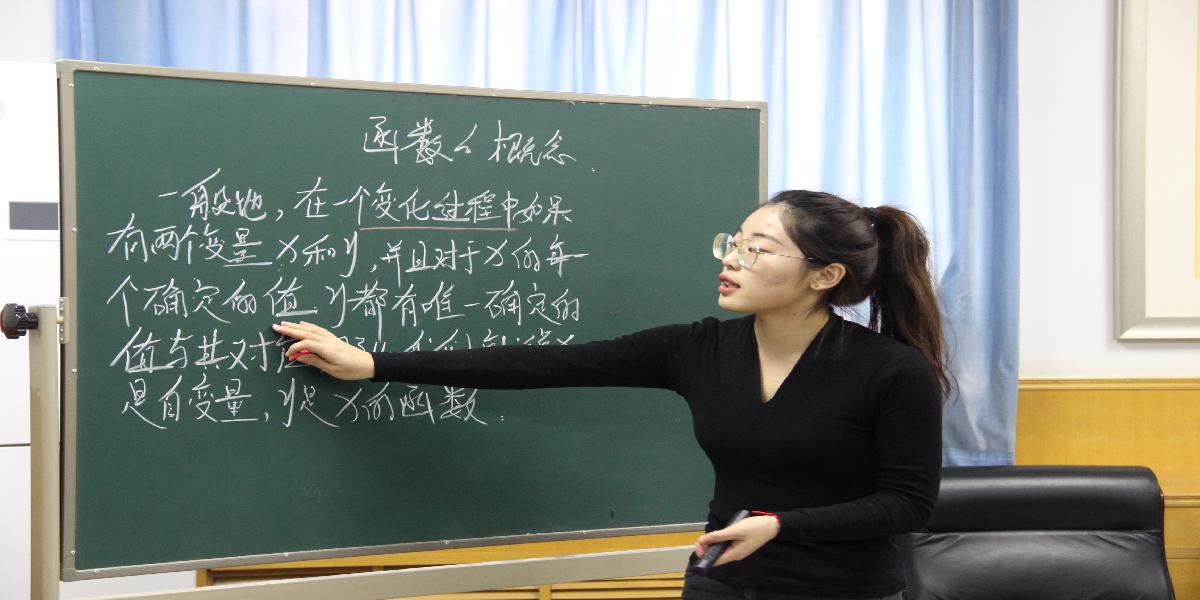 函数的概念
一般地，在一个变化过程中如果
有两个变量x和y，并且对于x的每一
个确定的值y都有唯一确定的
值与其对
是自变量，y是x的函数．